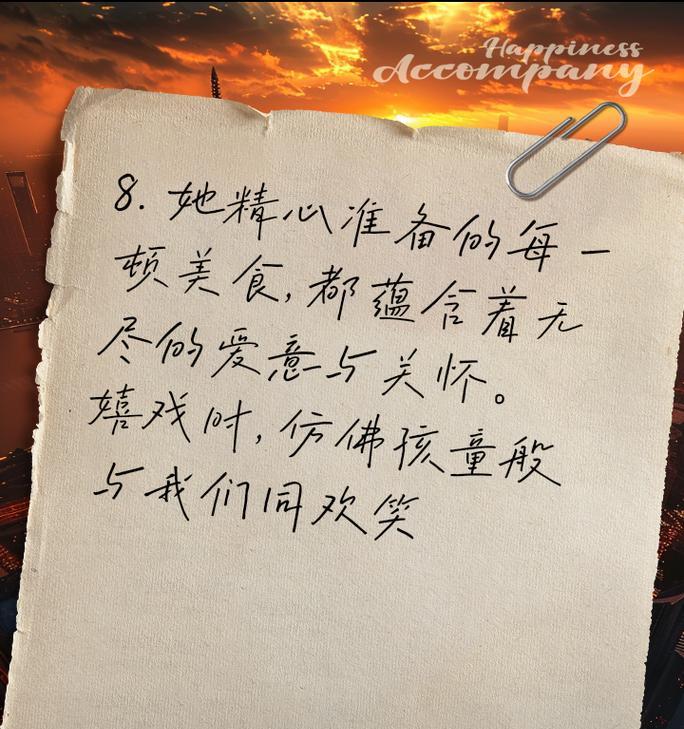 Happiness
Accompany
8. 她精心准备的每一
顿美食,都蕴含着无
尽的爱意与关怀。
嬉戏时,仿佛孩童般
与我们同欢笑